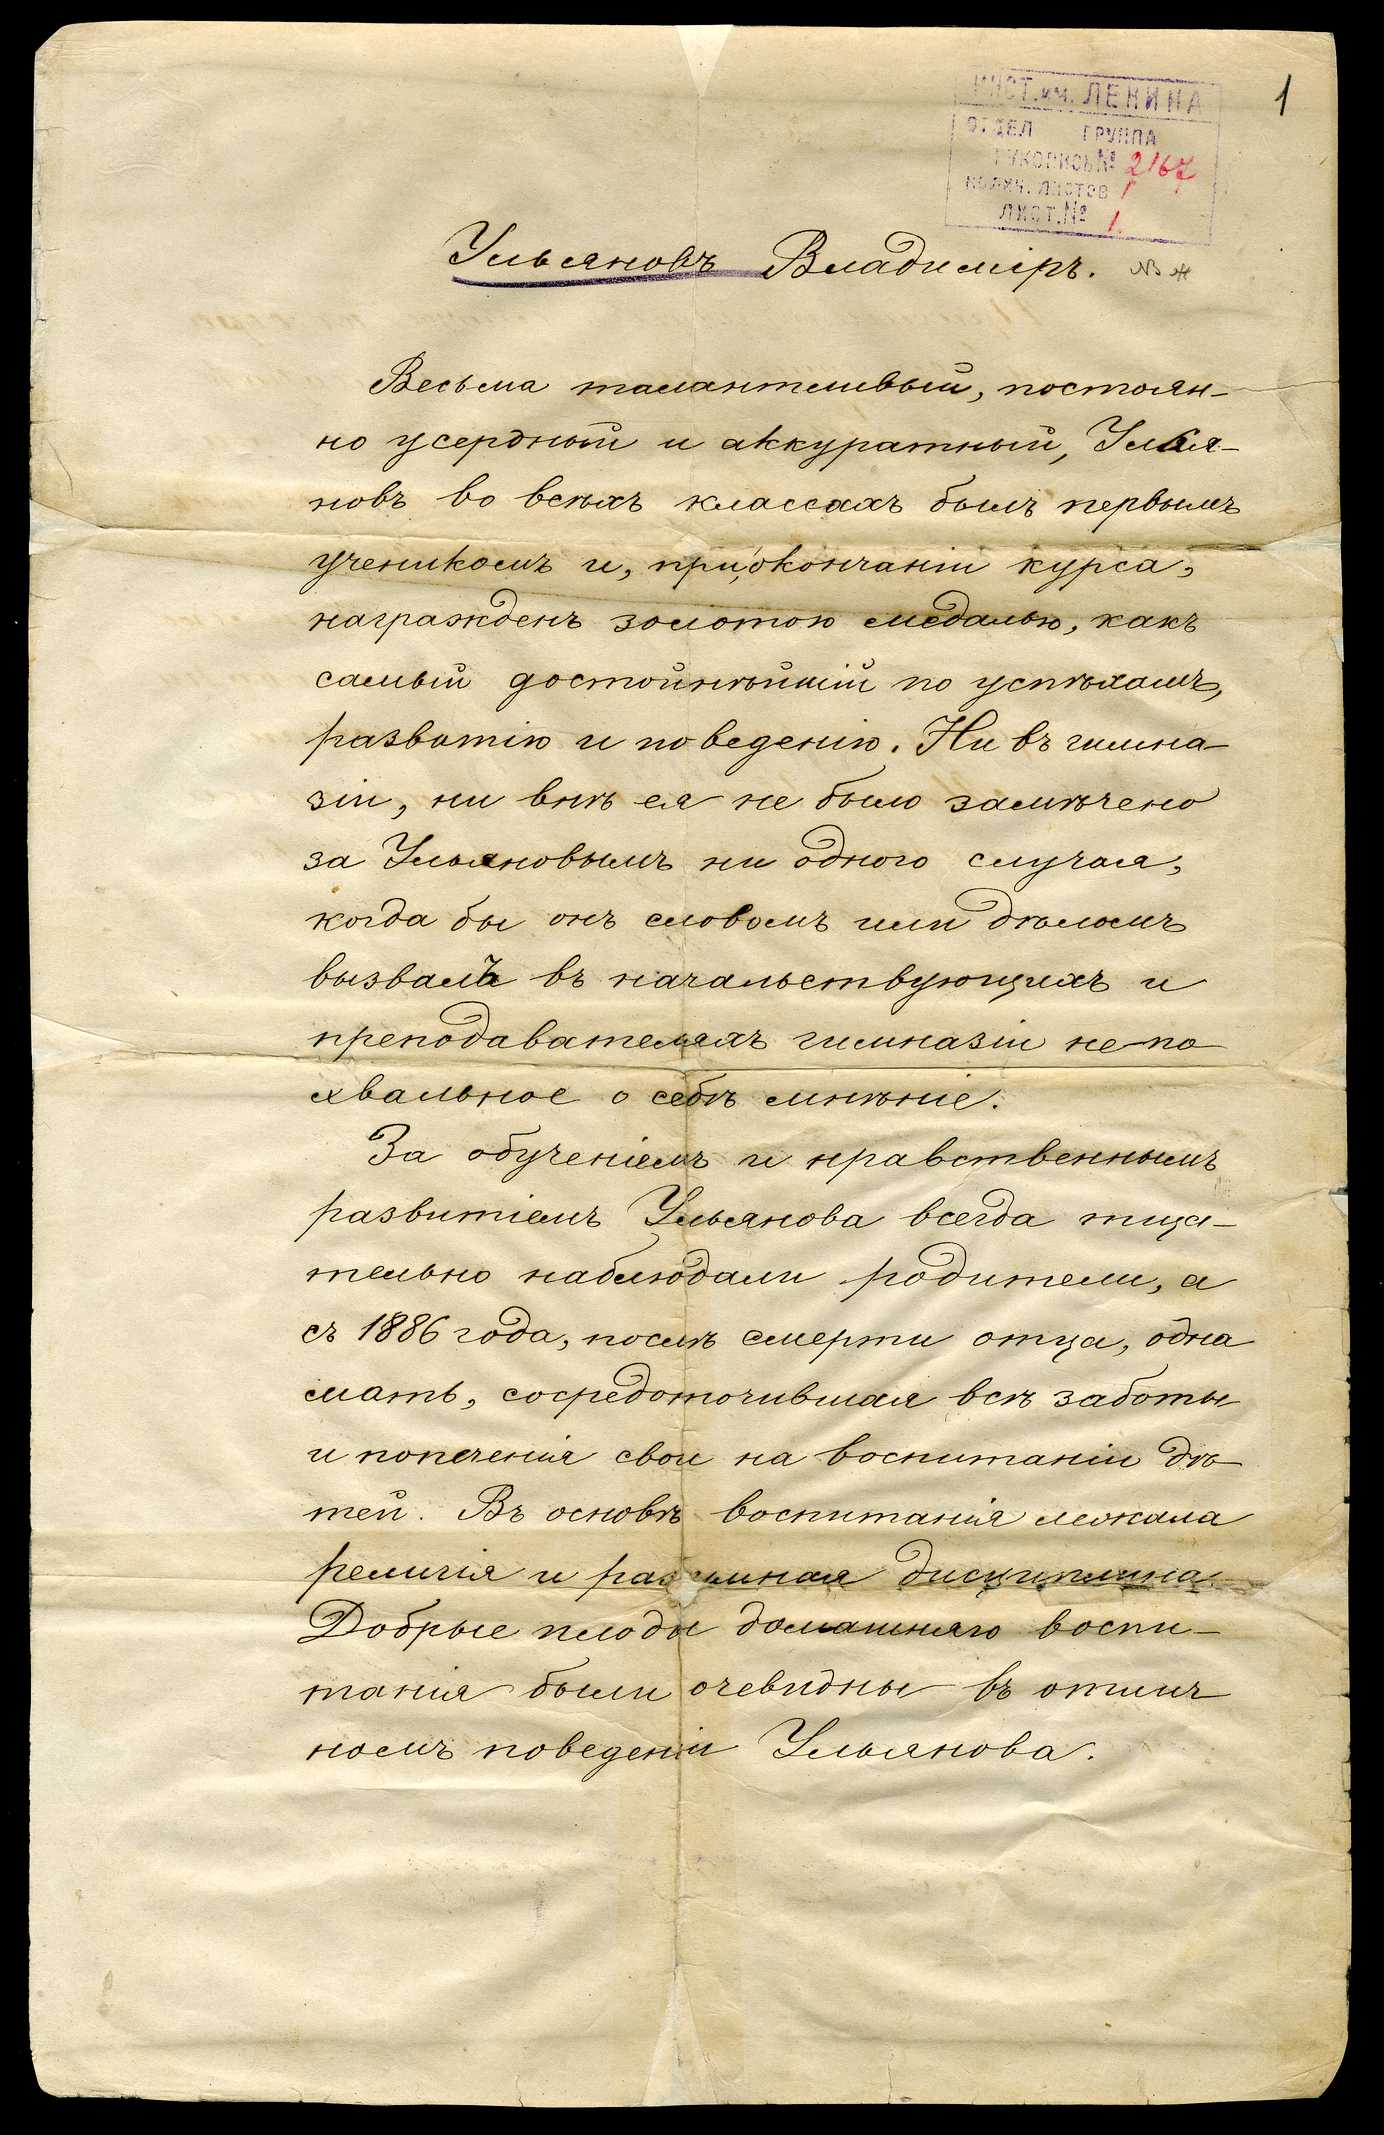 1
ИНСТ. им. ЛЕНИНА
ОТДЕЛ ГРУППА
РУКОПИСЬ № 2167
КОЛИЧ. ЛИСТОВ 1
ЛИСТ. № 1.
Ульяновъ Владиміръ.
Весьма талантливый, постоян-
но усердный и аккуратный, Улья-
новъ во всѣхъ классахъ былъ первымъ
ученикомъ и, при окончаніи курса,
награжденъ золотою медалью, какъ
самый достойнѣйшій по успѣхамъ,
развитію и поведенію. Ни въ гимна-
зіи, ни внѣ ея не было замѣчено
за Ульяновымъ ни одного случая,
когда бы онъ словомъ или дѣломъ
вызвалъ въ начальствующихъ и
преподавателяхъ гимназіи непо-
хвальное о себѣ мнѣніе.
За обученіемъ и нравственнымъ
развитіемъ Ульянова всегда тща-
тельно наблюдали родители, а
съ 1886 года, послѣ смерти отца, одна
мать, сосредоточившая всѣ заботы
и попеченія свои на воспитаніи дѣ-
тей. Въ основѣ воспитанія лежала
религія и разумная дисциплина.
Добрые плоды домашняго воспи-
танія были очевидны въ отлич-
номъ поведеніи Ульянова.